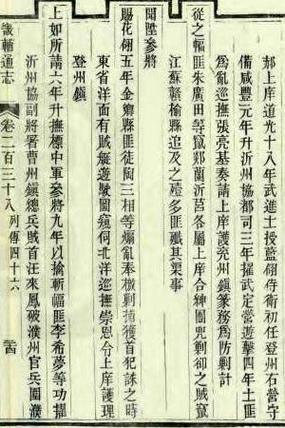 郝上庠道光十八年武進士授藍翎侍衛初任登州右營守
備咸豐元年升沂州協都司三年擢武定營遊擊四年土匪
爲亂巡撫張亮基奏請上庠護兗州鎮篆務爲防剿計
從之幅匪朱廣田等竄郯蘭沂莒各屬上庠合紳團兜剿卻之賊竄
江蘇贛榆縣追及之殪多匪殲其渠事
聞陞參將
賜花翎五年金鄉縣匪徒陶三相等煽亂奉檄剿捕獲首犯誅之時
東省洋面有賊艇遊駛圖竄何北洋巡撫崇恩令上庠護理
登州鎮
上如所請六年升撫標中軍參將九年以擒斬幅匪李希夢等功擢
沂州協副將署曹州鎮總兵賊首汪來鳳破濮州官兵圍濮
畿輔通志
卷二百三十八 列傳四十六